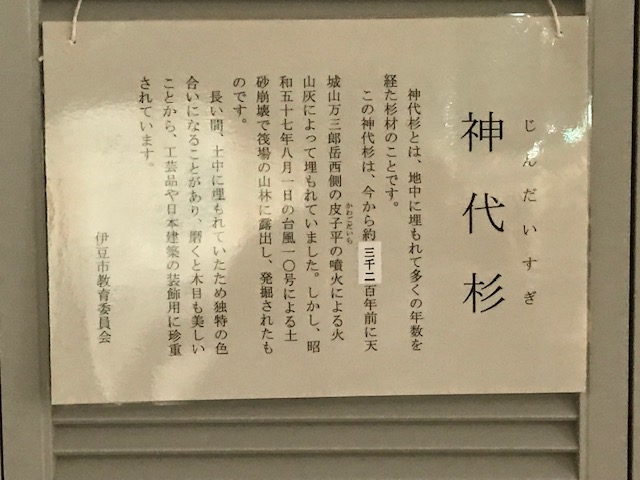 じんだいすぎ
神代杉
神代杉とは、地中に埋もれて多くの年数を
経た杉材のことです。
この神代杉は、今から約三千二百年前に天
城山万三郎岳西側の皮子平の噴火による火
かわごだいら
山灰によって埋もれていました。しかし、昭
和五十七年八月一日の台風一〇号による土
砂崩壊で筏場の山林に露出し、発掘されたも
のです。
長い間、土中に埋もれていたため独特の色
合いになることがあり、磨くと木目も美しい
ことから、工芸品や日本建築の装飾用に珍重
されています。
伊豆市教育委員会